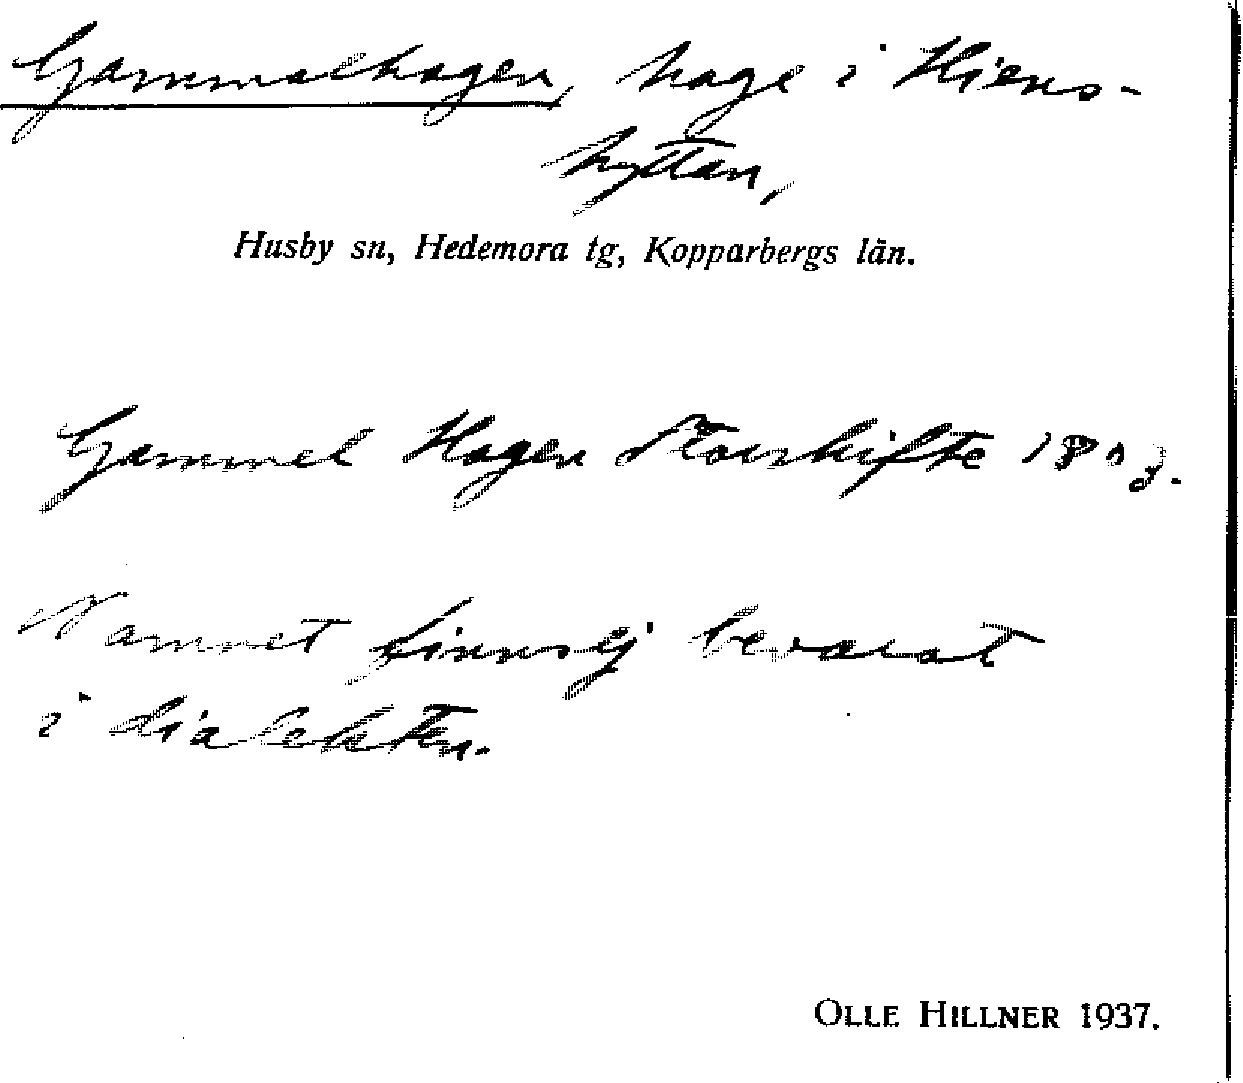 Gammalhagen, hage i Hiens-
hyttan,
Husby sn, Hedemora tg, Kopparbergs län.
Gammel Hagen Storskifte 1803.
Namnet finns ej bevarat
i dialekten.
OLLE HILLNER 1937.